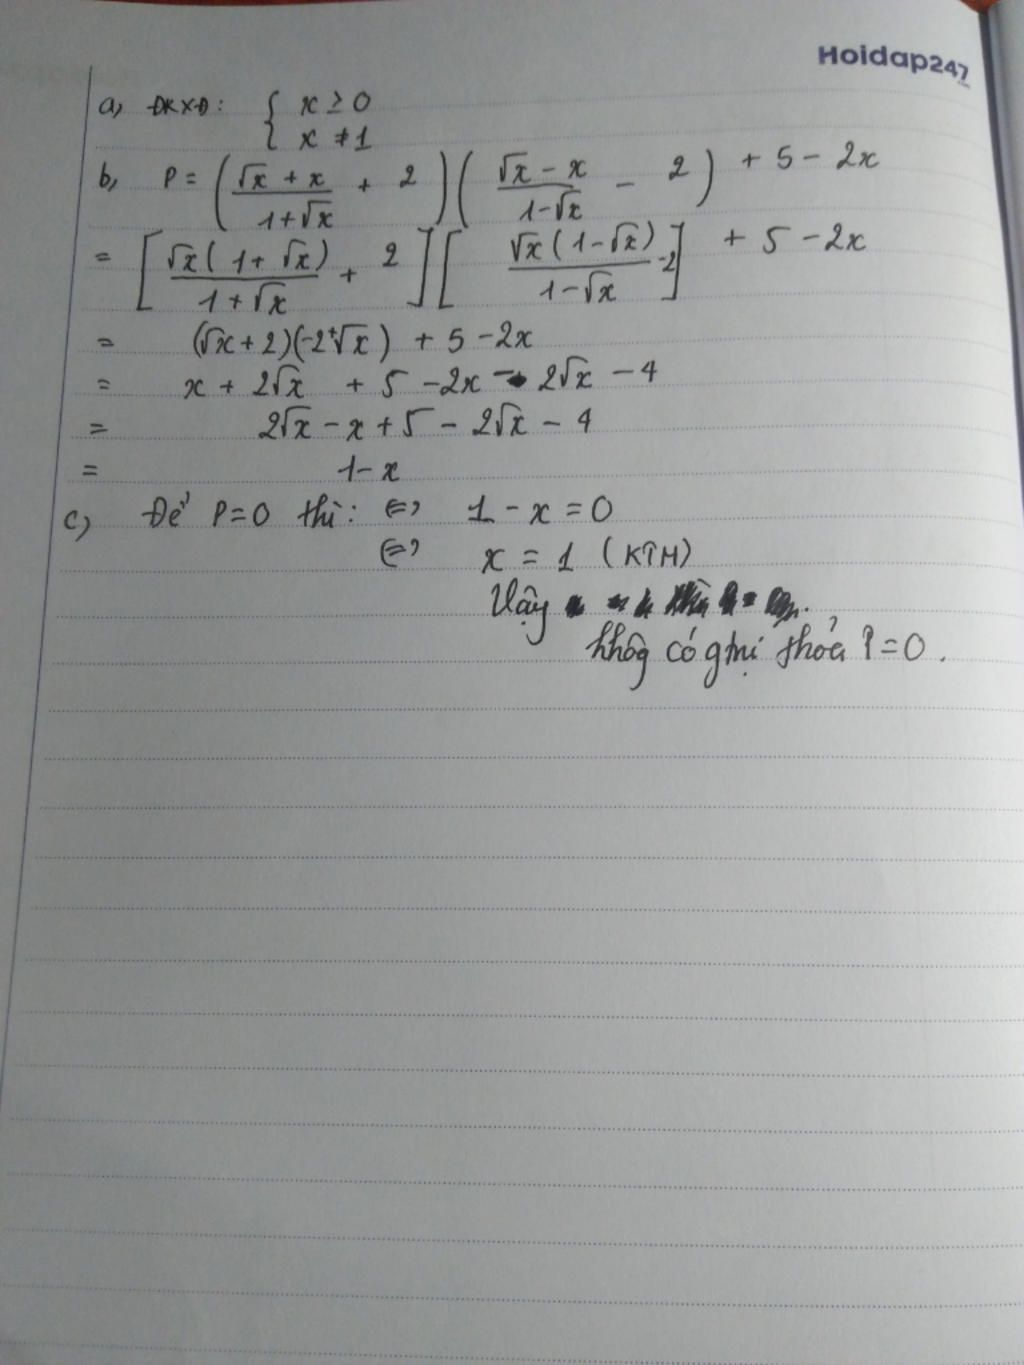 Hoidap247
a, ĐKXĐ: { x ≥ 0
x ≠ 1
b, P = ( (√x + x)/(1+√x) + 2 ) ( (√x - x)/(1-√x) - 2 ) + 5 - 2x
= [ √x(1+√x)/(1+√x) + 2 ] [ √x(1-√x)/(1-√x) -2 ] + 5 - 2x
= (√x+2)(-2+√x) + 5 -2x
= x + 2√x + 5 -2x - 2√x - 4
= 2√x - x + 5 - 2√x - 4
= 1-x
c, Để P=0 thì: <=> 1 - x = 0
<=> x = 1 (KTM)
Vậy
không có gtrị thỏa P=0.